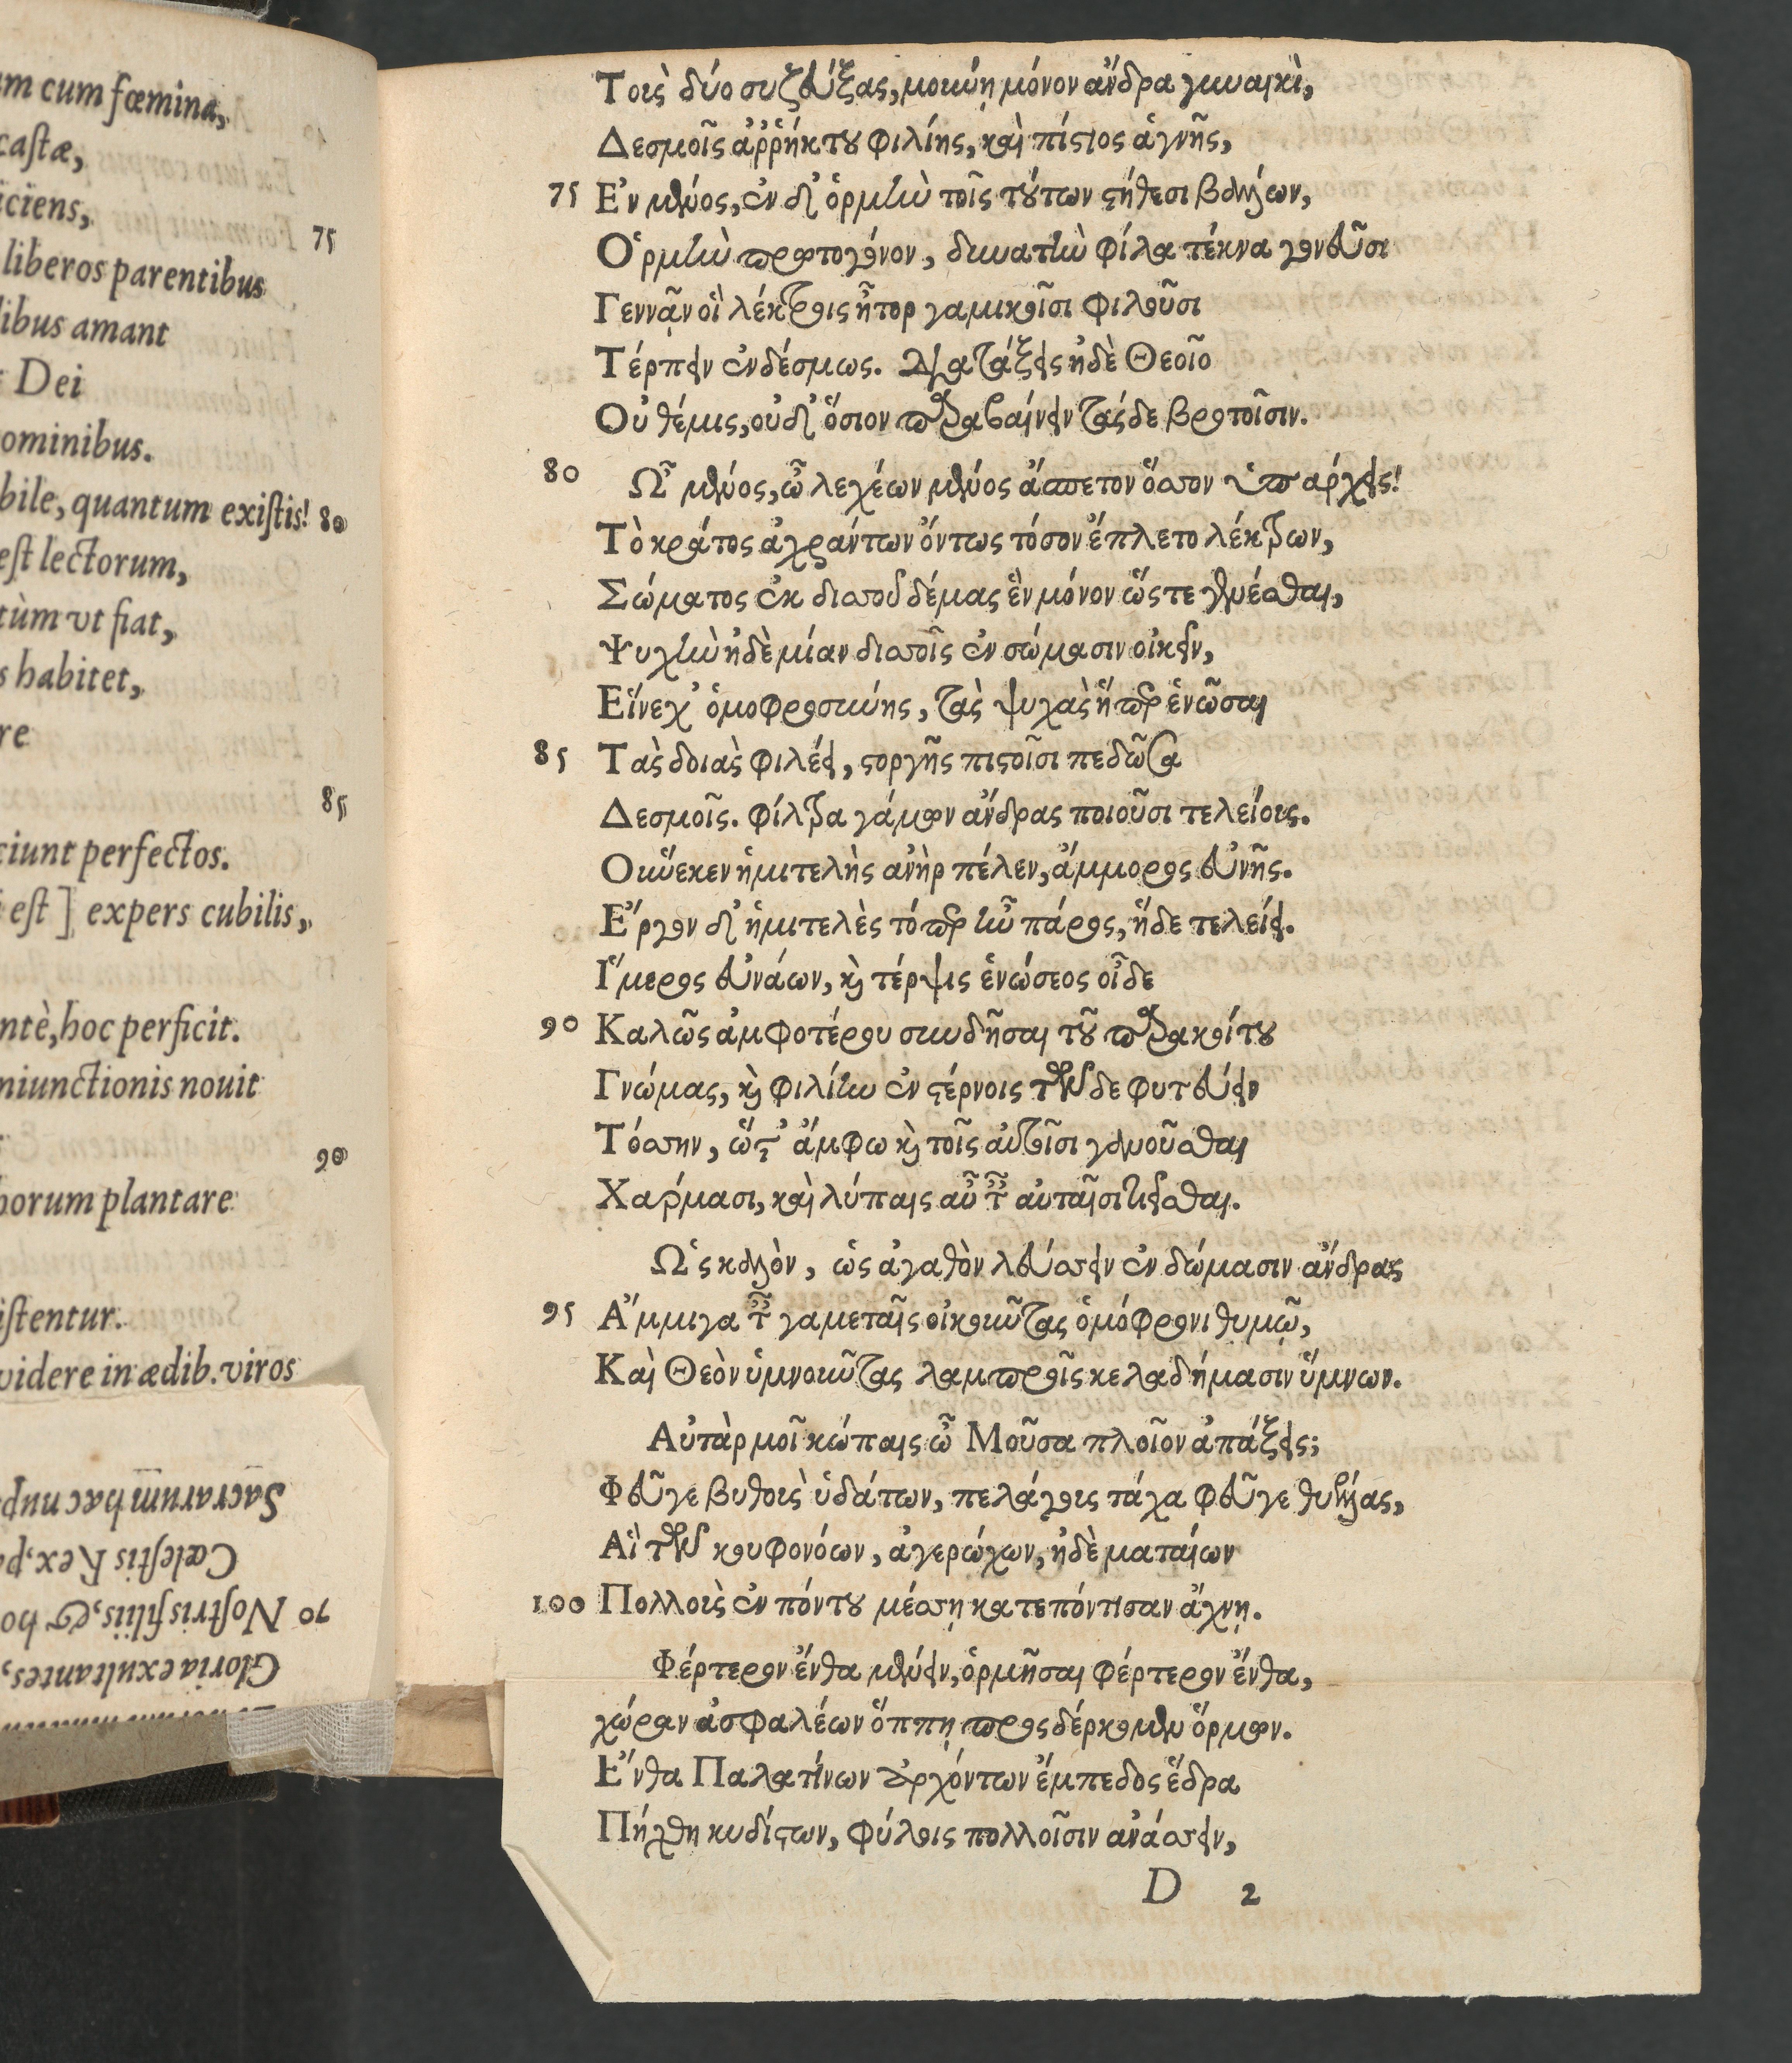 am cum fœmina,
castæ,
iciens,
75
liberos parentibus
libus amant
Dei
ominibus.
bile, quantum existis! 80
est lectorum,
tùm vt fiat,
s habitet,
re
85
ciunt perfectos.
est ] expers cubilis,
ntè, hoc perficit.
niunctionis nouit
90
horum plantare
istentur.
videre in ædib. viros
Sacrarum hac nup
Cœlestis Rex, p
70 Nostris filiis, & ho
Gloria exultantes,
Τοὺς δύο συζεύξας, μούνῃ μόνον ἄνδρα γυναικὶ,
Δεσμοῖς ἀῤῥήκτου φιλίης, καὶ πίστιος ἁγνῆς,
75 Ἐν μένος, ἐν δ' ὁρμὴν τοῖς τούτων στήθεσι βαλέων,
Ὁρμὴν πρωτογόνον, δυνατὴν φίλα τέκνα γονεῦσι
Γεννᾷν οἳ λέκτροις ἦτορ γαμικοῖσι φιλοῦσι
Τέρπειν ἐνδέσμως. Διατάξεις ἠδὲ Θεοῖο
Οὐ θέμις, οὐδ' ὅσιον παραβαίνειν τάςδε βροτοῖσιν.
80 Ὦ μένος, ὦ λεχέων μένος ἄσπετον ὅσσον ὑπάρχεις!
Τὸ κράτος ἀχράντων ὄντως τόσον ἔπλετο λέκτρων,
Σώματος ἐκ δισσοῦ δέμας ἓν μόνον ὥςτε γενέσθαι,
Ψυχὴν ἠδὲ μίαν δισσοῖς ἐν σώμασιν οἰκεῖν,
Εἵνεχ' ὁμοφροσύνης, τὰς ψυχὰς ἥπερ ἑνῶσαι
85 Τὰς δοιὰς φιλέει, στοργῆς πιστοῖσι πεδῶσα
Δεσμοῖς. φίλτρα γάμων ἄνδρας ποιοῦσι τελείους.
Οὕνεκεν ἡμιτελὴς ἀνὴρ πέλεν, ἄμμορος εὐνῆς.
Ἔργον δ' ἡμιτελὲς τόπερ ἦν πάρος, ἥδε τελείει.
Ἵμερος εὐνάων, καὶ τέρψις ἑνώσεος οἶδε
90 Καλῶς ἀμφοτέρου συνδῆσαι τοῦ παρακοίτου
Γνώμας, καὶ φιλίην ἐν στέρνοις τῶν δε φυτεύειν
Τόσσην, ὥςτ' ἄμφω καὶ τοῖς αὐτοῖσι γανοῦσθαι
Χάρμασι, καὶ λύπαις αὖτ' αὐταῖσι τείρεσθαι.
Ὡς καλὸν, ὡς ἀγαθὸν λεύσσειν ἐν δώμασιν ἄνδρας
95 Ἄμμιγα ταῖς γαμεταῖς οἰκοῦντας ὁμόφρονι θυμῷ,
Καὶ Θεὸν ὑμνοῦντας λαμπροῖς κελαδήμασιν ὕμνων.
Αὐτάρ μοῖ κώπαις ὦ Μοῦσα πλοῖον ἀπάξεις;
Φεῦγε βυθοὺς ὑδάτων, πελάγους τάχα φεῦγε θυέλλας,
Αἳ τῶν κουφονόων, ἀγερώχων, ἠδὲ ματαίων
100 Πολλοὺς ἐν πόντου μέσσῃ κατεπόντισαν ἄχνῃ.
Φέρτερον ἔνθα μένειν, ὁρμῆσαι φέρτερον ἔνθα,
χώραν ἀσφαλέων ὅππῃ προςδέρκομεν ὅρμων.
Ἔνθα Παλατίνων ἀρχόντων ἔμπεδος ἕδρα
Πήχθη κυδίστων, φύλοις πολλοῖσιν ἀνάσσειν,
D 2